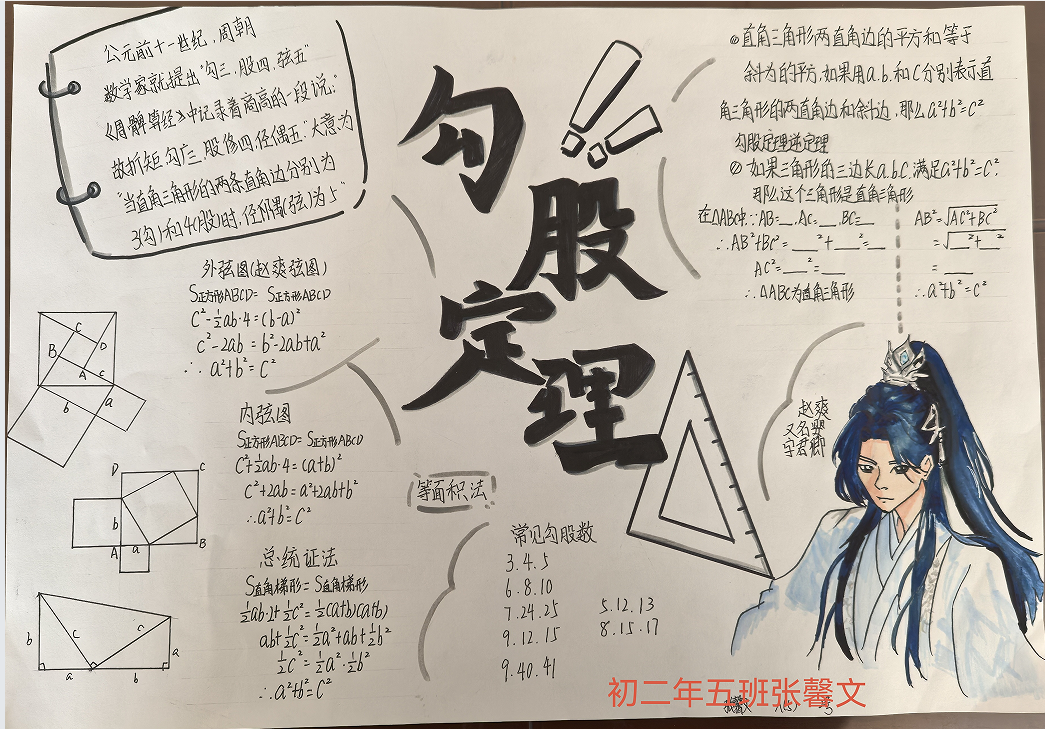 公元前十一世纪，周朝
数学家就提出"勾三，股四，弦五"
《周髀算经》中记录着商高的一段说："
故折矩，勾广三，股修四，径隅五。"大意为
"当直角三角形的两条直角边分别为
3(勾)和4(股)时，径隅(弦)为5"
勾
股
定
理
①直角三角形两直角边的平方和等于
斜为的平方，如果用a.b.和c分别表示直
角三角形的两直角边和余斗边，那么a²+b²=c²
勾股定理逆定理
②如果三角形的三边长a.b.c.满足a²+b²=c²,
那么这个三角形是直角三角形
在△ABC中∵AB=__,AC=__,BC=__
∴AB²+BC²=__²+__²=__
AC²=__²=__
∴△ABC为直角三角形
AB²=√AC²+BC²
=√__²+__²
=__
∴a²+b²=c²
外弦图(赵爽弦图)
S正方形ABCD= S正方形ABCD
c²-½ab·4=(b-a)²
c²-2ab=b²-2ab+a²
∴a²+b²=c²
c
B
D
A
c
b
a
内弦图
S正方形ABCD=S正方形ABCD
c²+½ab·4=(a+b)²
c²+2ab=a²+2ab+b²
∴a²+b²=c²
D
C
b
A
a
B
总统证法
S直角梯形=S直角梯形
½ab·2+½c²=½(a+b)(a+b)
ab+½c²=½a²+ab+½b²
½c²=½a²·½b²
∴a²+b²=c²
b
c
c
a
a
b
等面积法
常见勾股数
3.4.5
6.8.10
7.24.25
9.12.15
9.40.41
5.12.13
8.15.17
赵爽
又名婴
字君卿
初二年五班张馨文